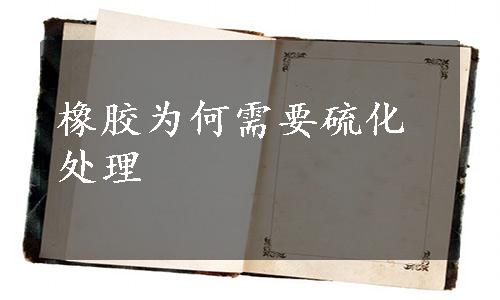 橡胶为何需要硫化
处理